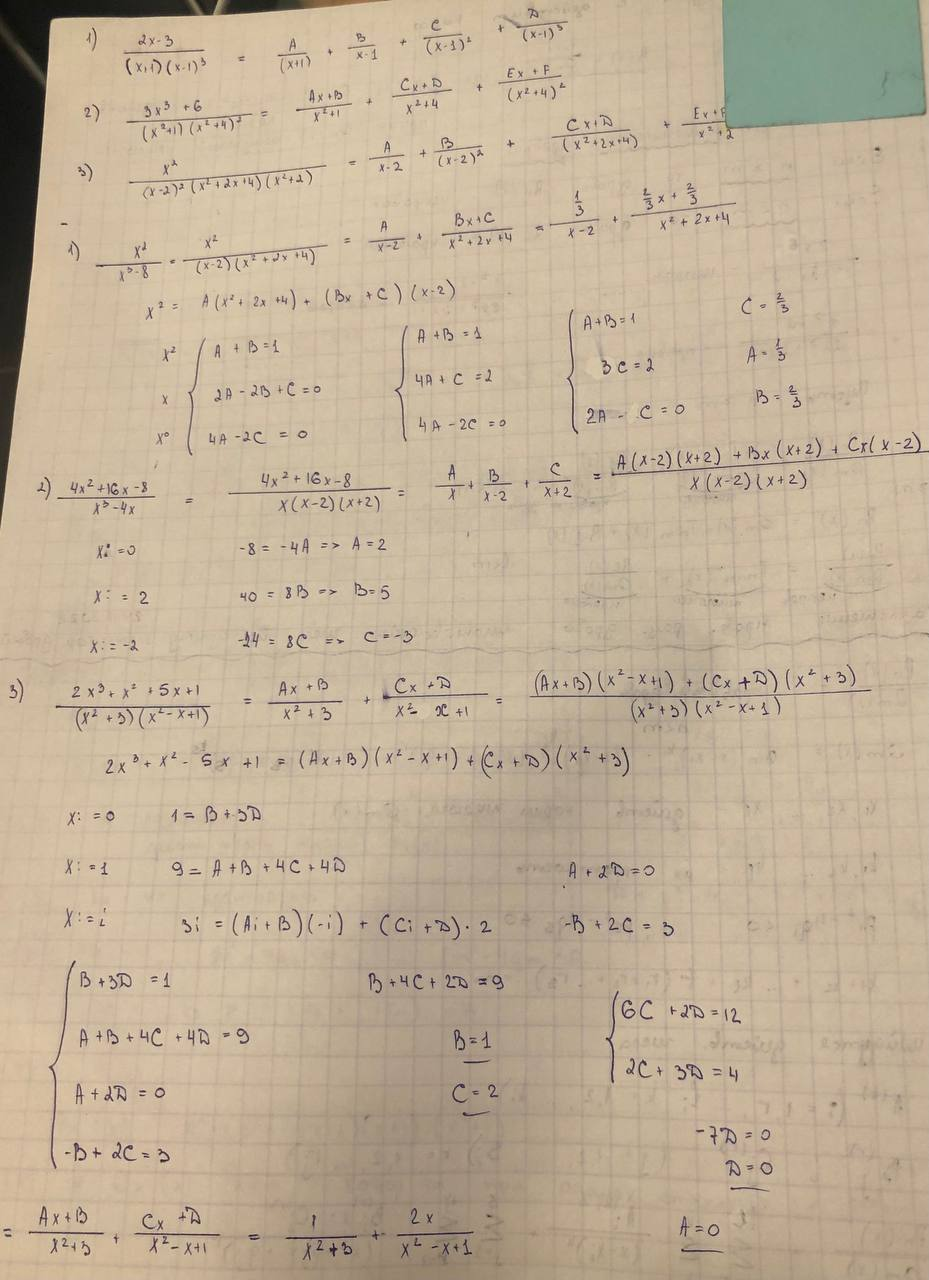 1) (2x-3)/((x+1)(x-1)^3) = A/(x+1) + B/(x-1) + C/(x-1)^2 + D/(x-1)^3
2) (3x^3+6)/((x^2+1)(x^2+4)^2) = (Ax+B)/(x^2+1) + (Cx+D)/(x^2+4) + (Ex+F)/(x^2+4)^2
3) x^2/((x-2)^2(x^2+2x+4)(x^2+2)) = A/(x-2) + B/(x-2)^2 + (Cx+D)/(x^2+2x+4) + (Ex+F)/(x^2+2)
1) x^2/(x^3-8) = x^2/((x-2)(x^2+2x+4)) = A/(x-2) + (Bx+C)/(x^2+2x+4) = (1/3)/(x-2) + (2/3x+2/3)/(x^2+2x+4)
x^2 = A(x^2+2x+4) + (Bx+C)(x-2)
x^2 { A+B=1 { A+B=1 { A+B=1 C=2/3
x 2A-2B+C=0 4A+C=2 3C=2 A=1/3
x^0 4A-2C=0 4A-2C=0 2A-C=0 B=2/3
2) (4x^2+16x-8)/(x^3-4x) = (4x^2+16x-8)/(x(x-2)(x+2)) = A/x + B/(x-2) + C/(x+2) = (A(x-2)(x+2)+Bx(x+2)+Cx(x-2))/(x(x-2)(x+2))
x:=0 -8=-4A => A=2
x:=2 40=8B => B=5
x:=-2 -24=8C => C=-3
3) (2x^3+x^2+5x+1)/((x^2+3)(x^2-x+1)) = (Ax+B)/(x^2+3) + (Cx+D)/(x^2-x+1) = ((Ax+B)(x^2-x+1)+(Cx+D)(x^2+3))/((x^2+3)(x^2-x+1))
2x^3+x^2-5x+1 = (Ax+B)(x^2-x+1)+(Cx+D)(x^2+3)
x:=0 1=B+3D
x:=1 9=A+B+4C+4D A+2D=0
x:=i 3i=(Ai+B)(-i)+(Ci+D)·2 -B+2C=3
{ B+3D=1 B+4C+2D=9 { 6C+2D=12
A+B+4C+4D=9 B=1 2C+3D=4
A+2D=0 C=2
-B+2C=3 -7D=0
D=0
= (Ax+B)/(x^2+3) + (Cx+D)/(x^2-x+1) = 1/(x^2+3) + 2x/(x^2-x+1) A=0